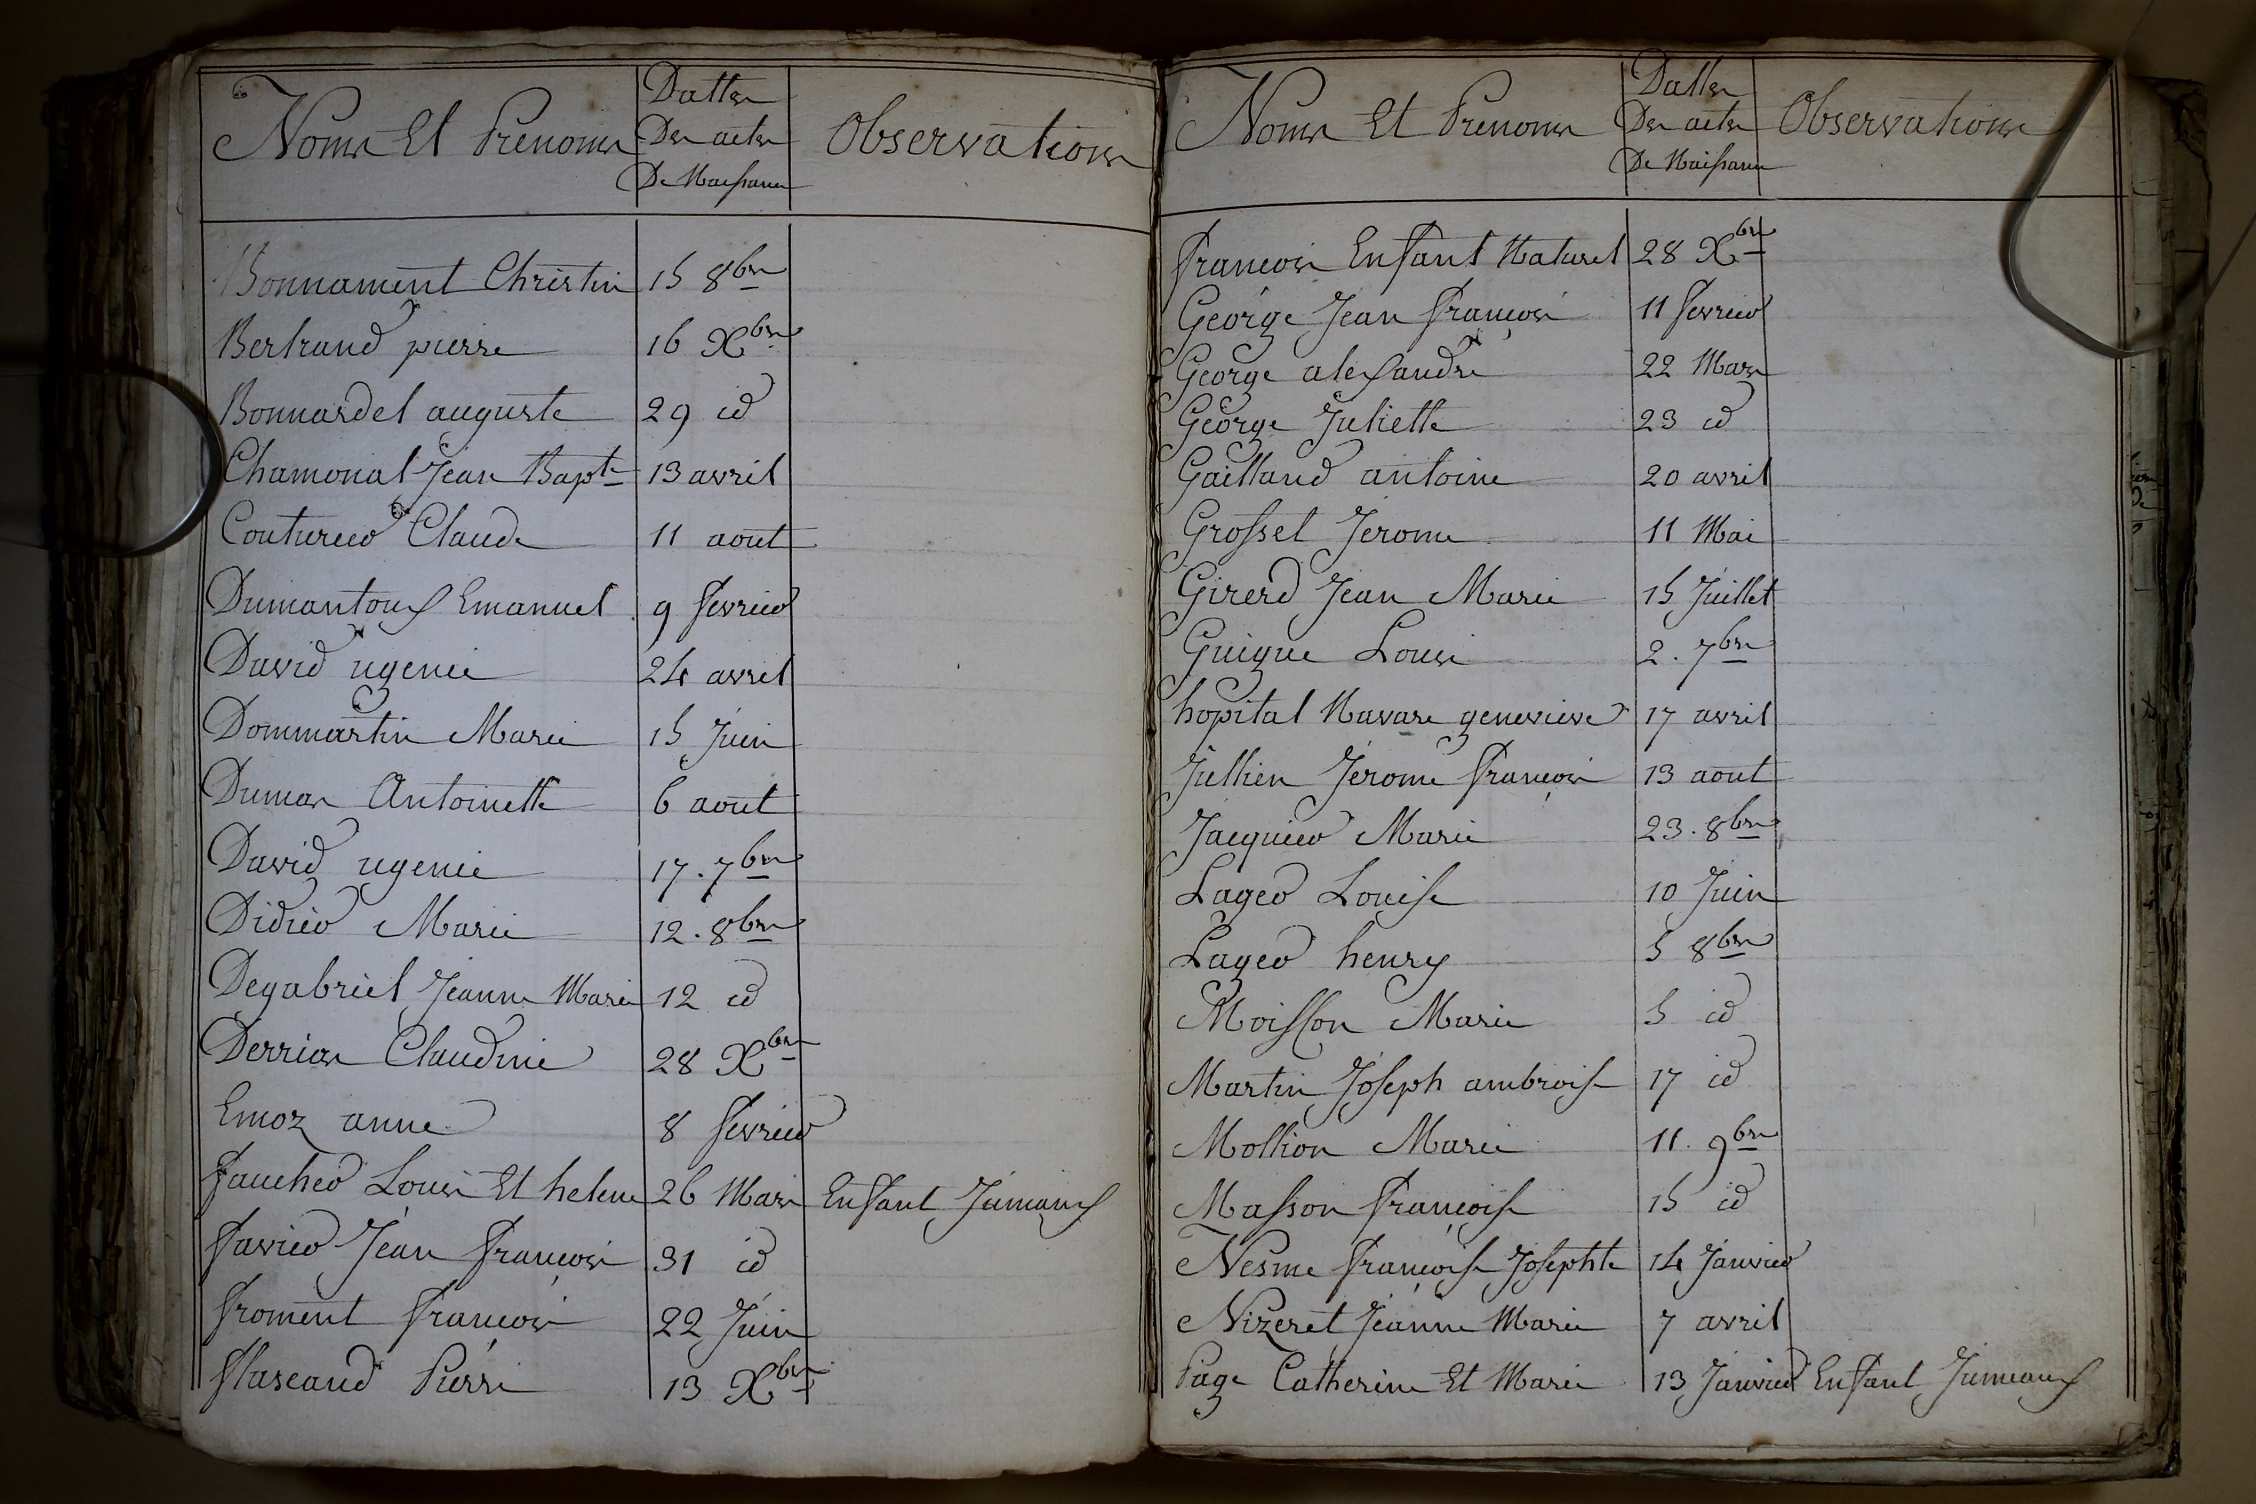 Noms Et Prenoms
Dattes
Des actes
De Naissance
Observations
Bonnament Christin 15 8bre
Bertrand pierre 16 Xbre
Bonnardel auguste 29 id
Chamonal Jean Bapte 13 avril
Couturier Claude 11 aout
Dumantoux Emanuel 9 fevrier
David ugenie 24 avril
Dommartin Marie 15 Juin
Dumas Antoinette 6 aout
David ugenie 17. 7bre
Didier Marie 12. 8bre
Degabriel Jeanne Marie 12 id
Derrias Claudine 28 Xbre
Emoz anne 8 fevrier
faucher Louis Et helene 26 Mars Enfant Jumaux
favier Jean françois 31 id
froment françois 22 Juin
flascaud Pierre 13 Xbre
Noms Et Prenoms
Dattes
Des actes
De Naissance
Observations
francois Enfant Naturel 28 Xbre
George Jean françois 11 fevrier
George alexandre 22 Mars
George Juliette 23 id
Gailland antoine 20 avril
Grosset Jerome 11 Mai
Girerd Jean Marie 15 Juillet
Guigue Louis 2. 7bre
hopital Navare genevieve 17 avril
Jullien Jerome françois 13 aout
Jacquier Marie 23. 8bre
Lager Louise 10 Juin
Lager henry 5 8bre
Moisson Marie 5 id
Martin Joseph ambroise 17 id
Mollion Marie 11. 9bre
Masson françoise 15 id
Nesme françoise Josephte 14 Janvier
Nizeret Jeanne Marie 7 avril
Page Catherine Et Marie 13 Janvier Enfant Jumeaux